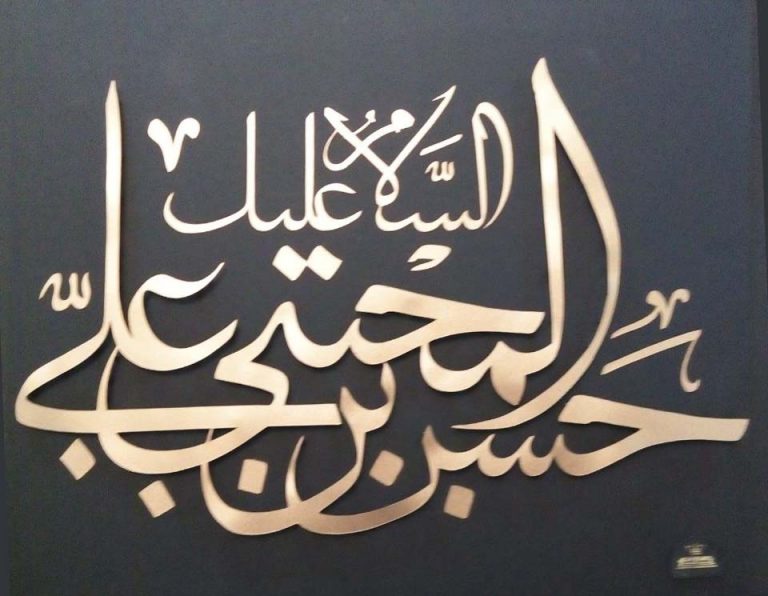 السَّلام عليك
حسن بن عليّ المجتبى